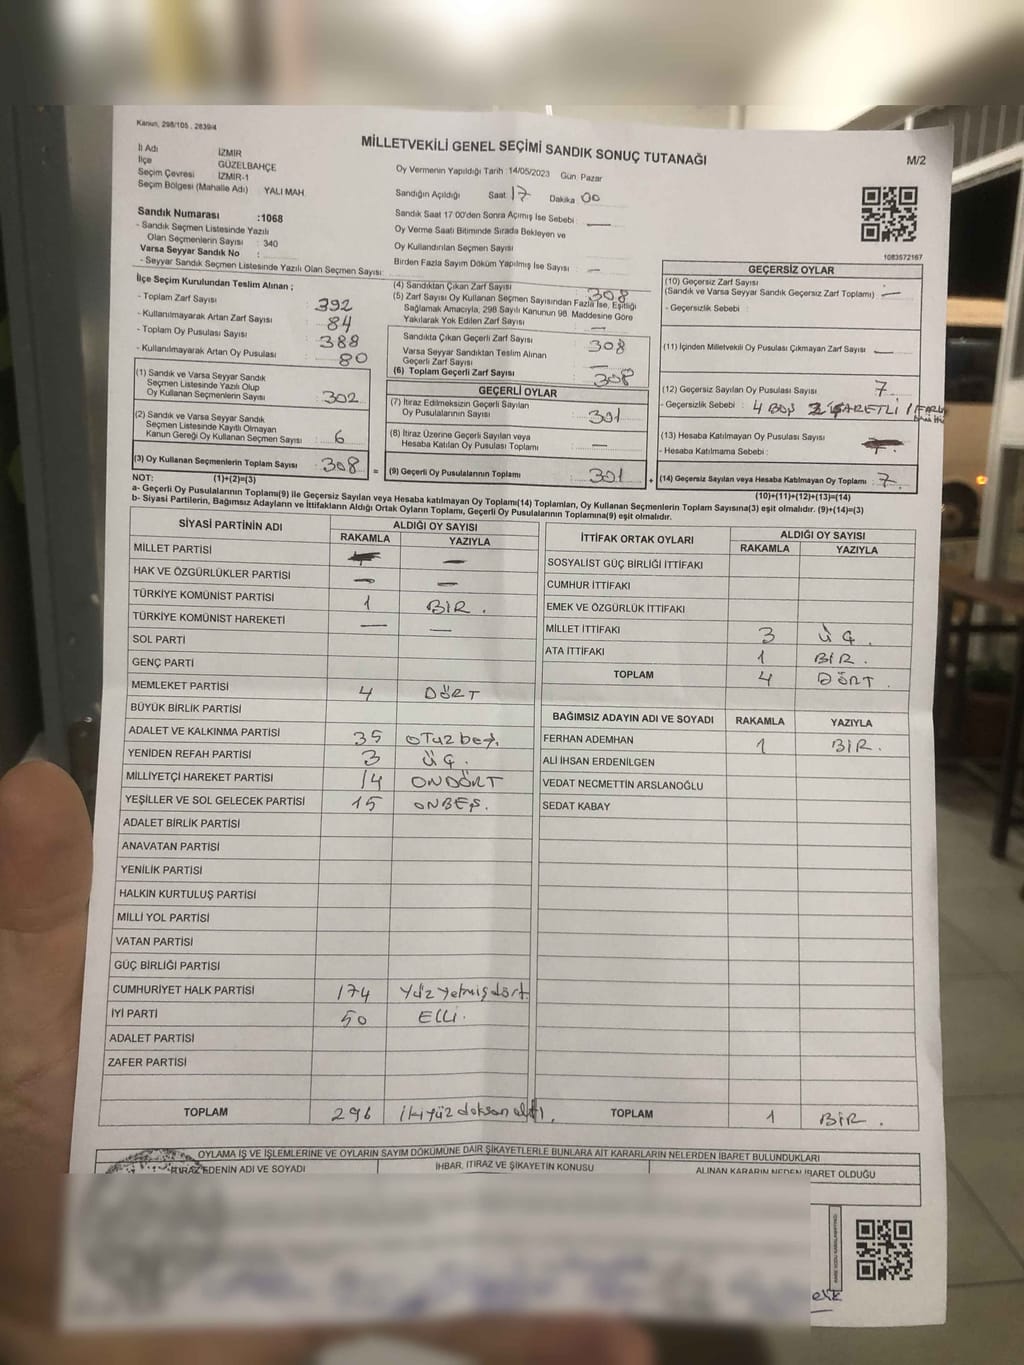 Kanun, 298/105, 2839/4
MİLLETVEKİLİ GENEL SEÇİMİ SANDIK SONUÇ TUTANAĞI
M/2
İl Adı İZMİR
İlçe GÜZELBAHÇE
Seçim Çevresi İZMİR-1
Seçim Bölgesi (Mahalle Adı) YALI MAH.
Oy Vermenin Yapıldığı Tarih : 14/05/2023 Gün: Pazar
Sandığın Açıldığı Saat 17 Dakika 00
Sandık Numarası :1068
- Sandık Seçmen Listesinde Yazılı
Olan Seçmenlerin Sayısı : 340
Varsa Seyyar Sandık No :
- Seyyar Sandık Seçmen Listesinde Yazılı Olan Seçmen Sayısı:
Sandık Saat 17:00'den Sonra Açımış İse Sebebi : —
Oy Verme Saati Bitiminde Sırada Bekleyen ve
Oy Kullandırılan Seçmen Sayısı
Birden Fazla Sayım Döküm Yapılmış İse Sayısı : —
1083572167
İlçe Seçim Kurulundan Teslim Alınan ;
- Toplam Zarf Sayısı : 392
- Kullanılmayarak Artan Zarf Sayısı : 84
- Toplam Oy Pusulası Sayısı : 388
- Kullanılmayarak Artan Oy Pusulası : 80
(1) Sandık ve Varsa Seyyar Sandık
Seçmen Listesinde Yazılı Olup
Oy Kullanan Seçmenlerin Sayısı : 302
(2) Sandık ve Varsa Seyyar Sandık
Seçmen Listesinde Kayıtlı Olmayan
Kanun Gereği Oy Kullanan Seçmen Sayısı : 6
(3) Oy Kullanan Seçmenlerin Toplam Sayısı : 308
(4) Sandıktan Çıkan Zarf Sayısı : 308
(5) Zarf Sayısı Oy Kullanan Seçmen Sayısından Fazla İse, Eşitliği
Sağlamak Amacıyla, 298 Sayılı Kanunun 98. Maddesine Göre
Yakılarak Yok Edilen Zarf Sayısı : —
Sandıkta Çıkan Geçerli Zarf Sayısı : 308
Varsa Seyyar Sandıktan Teslim Alınan
Geçerli Zarf Sayısı : —
(6) Toplam Geçerli Zarf Sayısı : 308
GEÇERLİ OYLAR
(7) İtiraz Edilmeksizin Geçerli Sayılan
Oy Pusulalarının Sayısı : 301
(8) İtiraz Üzerine Geçerli Sayılan veya
Hesaba Katılan Oy Pusulası Toplamı : —
= (9) Geçerli Oy Pusulalarının Toplamı : 301 +
GEÇERSİZ OYLAR
(10) Geçersiz Zarf Sayısı
(Sandık ve Varsa Seyyar Sandık Geçersiz Zarf Toplamı) : —
- Geçersizlik Sebebi :
(11) İçinden Milletvekili Oy Pusulası Çıkmayan Zarf Sayısı : —
(12) Geçersiz Sayılan Oy Pusulası Sayısı : 7
- Geçersizlik Sebebi : 4 BOŞ 2 İŞARETLİ 1
(13) Hesaba Katılmayan Oy Pusulası Sayısı
- Hesaba Katılmama Sebebi :
(14) Geçersiz Sayılan veya Hesaba Katılmayan Oy Toplamı : 7.
NOT: (1)+(2)=(3) (10)+(11)+(12)+(13)=(14)
a- Geçerli Oy Pusulalarının Toplamı(9) ile Geçersiz Sayılan veya Hesaba katılmayan Oy Toplam(14) Toplamları, Oy Kullanan Seçmenlerin Toplam Sayısına(3) eşit olmalıdır. (9)+(14)=(3)
b- Siyasi Partilerin, Bağımsız Adayların ve İttifakların Aldığı Ortak Oyların Toplamı, Geçerli Oy Pusulalarının Toplamına(9) eşit olmalıdır.
SİYASİ PARTİNİN ADI ALDIĞI OY SAYISI
RAKAMLA YAZIYLA
MİLLET PARTİSİ —
HAK VE ÖZGÜRLÜKLER PARTİSİ — —
TÜRKİYE KOMÜNİST PARTİSİ 1 BİR.
TÜRKİYE KOMÜNİST HAREKETİ — —
SOL PARTİ
GENÇ PARTİ
MEMLEKET PARTİSİ 4 DÖRT
BÜYÜK BİRLİK PARTİSİ
ADALET VE KALKINMA PARTİSİ 35 otuzbeş.
YENİDEN REFAH PARTİSİ 3 ÜÇ.
MİLLİYETÇİ HAREKET PARTİSİ 14 ONDÖRT
YEŞİLLER VE SOL GELECEK PARTİSİ 15 ONBEŞ.
ADALET BİRLİK PARTİSİ
ANAVATAN PARTİSİ
YENİLİK PARTİSİ
HALKIN KURTULUŞ PARTİSİ
MİLLİ YOL PARTİSİ
VATAN PARTİSİ
GÜÇ BİRLİĞİ PARTİSİ
CUMHURİYET HALK PARTİSİ 174 Yüz yetmiş dört
İYİ PARTİ 50 ELLİ.
ADALET PARTİSİ
ZAFER PARTİSİ
TOPLAM 296 ikiyüz doksan altı.
İTTİFAK ORTAK OYLARI ALDIĞI OY SAYISI
RAKAMLA YAZIYLA
SOSYALİST GÜÇ BİRLİĞİ İTTİFAKI
CUMHUR İTTİFAKI
EMEK VE ÖZGÜRLÜK İTTİFAKI
MİLLET İTTİFAKI 3 ÜÇ.
ATA İTTİFAKI 1 BİR.
TOPLAM 4 DÖRT.
BAĞIMSIZ ADAYIN ADI VE SOYADI RAKAMLA YAZIYLA
FERHAN ADEMHAN 1 BİR.
ALİ İHSAN ERDENİLGEN
VEDAT NECMETTİN ARSLANOĞLU
SEDAT KABAY
TOPLAM 1 BİR.
OYLAMA İŞ VE İŞLEMLERİNE VE OYLARIN SAYIM DÖKÜMÜNE DAİR ŞİKAYETLERLE BUNLARA AİT KARARLARIN NELERDEN İBARET BULUNDUKLARI
İTİRAZ EDENİN ADI VE SOYADI İHBAR, İTİRAZ VE ŞİKAYETİN KONUSU ALINAN KARARIN NEDEN İBARET OLDUĞU